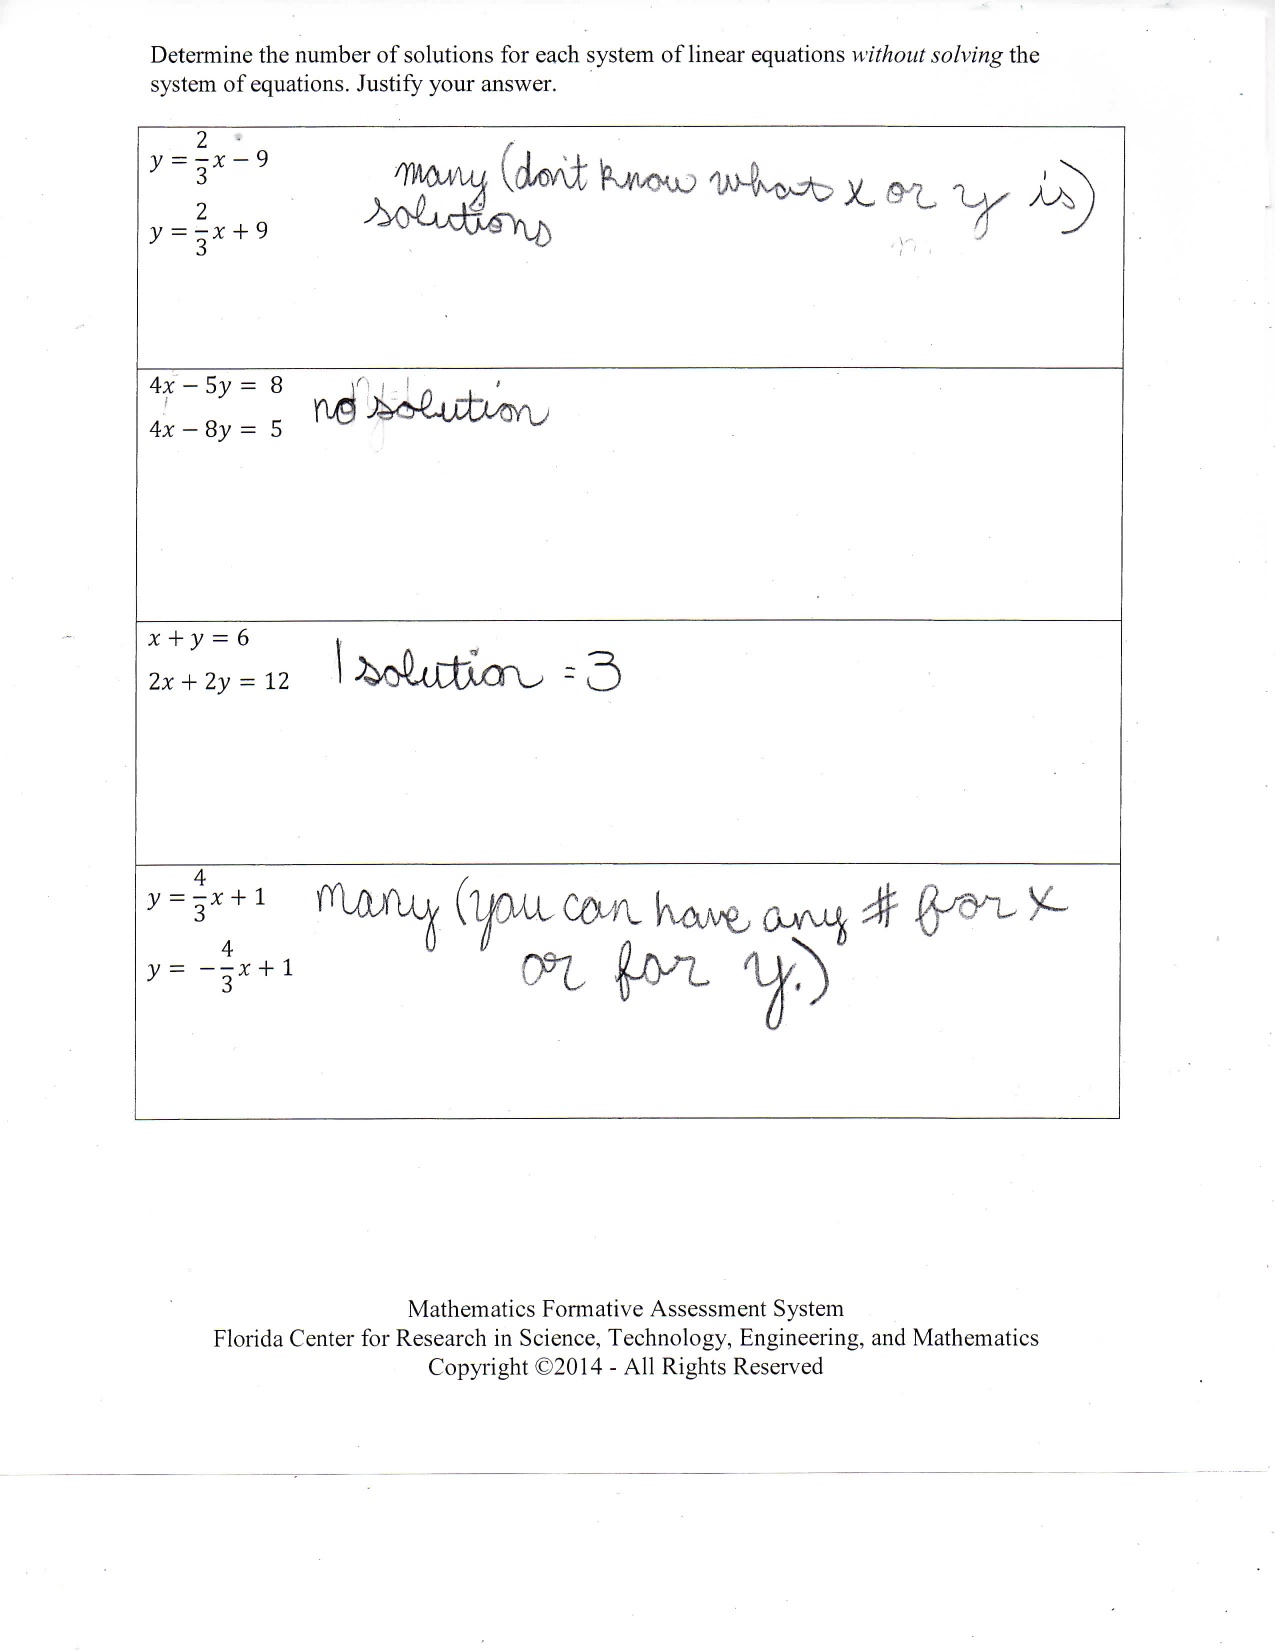 Determine the number of solutions for each system of linear equations without solving the
system of equations. Justify your answer.
y = 2/3 x − 9
many (don't know what x or y is)
solutions
y = 2/3 x + 9
4x − 5y = 8
no solution
4x − 8y = 5
x + y = 6
1 solution = 3
2x + 2y = 12
y = 4/3 x + 1
many (you can have any # for x
or for y.)
y = −4/3 x + 1
Mathematics Formative Assessment System
Florida Center for Research in Science, Technology, Engineering, and Mathematics
Copyright ©2014 - All Rights Reserved